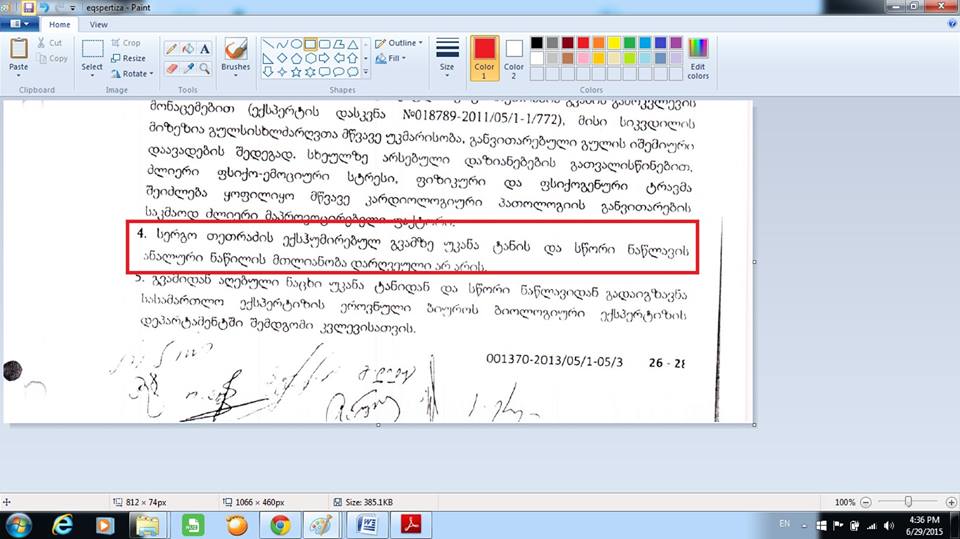 eqspertiza - Paint
Home View
Paste
Cut
Copy
Clipboard
Select
Crop
Resize
Rotate
Image
Tools
Brushes
Shapes
Outline
Fill
Size
Color 1
Color 2
Edit colors
Colors
მონაცემებით (ექსპერტის დასკვნა №018789-2011/05/1-1/772), მისი სიკვდილის
მიზეზია გულსისხლძარღვთა მწვავე უკმარისობა, განვითარებული გულის იშემიური
დაავადების შედეგად. სხეულზე არსებული დაზიანებების გათვალისწინებით,
ძლიერი ფსიქო-ემოციური სტრესი, ფიზიკური და ფსიქოგენური ტრავმა
შეიძლება ყოფილიყო მწვავე კარდიოლოგიური პათოლოგიის განვითარების
საკმაოდ ძლიერი მაპროვოცირებელი ფაქტორი.
4. სერგო თეთრაძის ექსჰუმირებულ გვამზე უკანა ტანის და სწორი ნაწლავის
ანალური ნაწილის მთლიანობა დარღვეული არ არის.
5. გვამიდან აღებული ნაცხი უკანა ტანიდან და სწორი ნაწლავიდან გადაიგზავნა
სასამართლო ექსპერტიზის ეროვნული ბიუროს ბიოლოგიური ექსპერტიზის
დეპარტამენტში შემდგომი კვლევისათვის.
001370-2013/05/1-05/3 26 - 28
812 × 74px
1066 × 460px
Size: 385.1KB
100%
EN
4:36 PM
6/29/2015